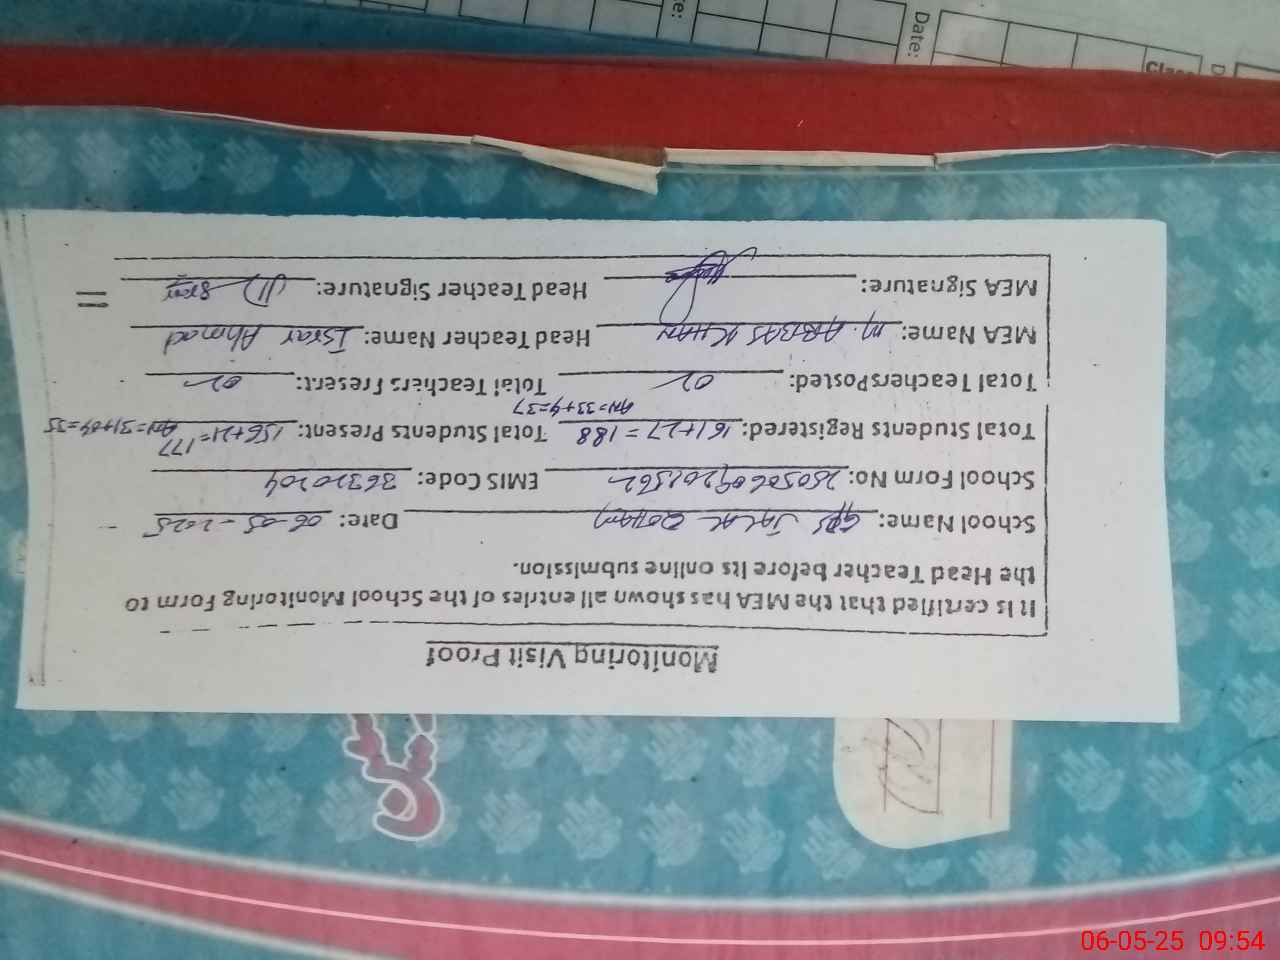 Monitoring Visit Proof
It is certified that the MEA has shown all entries of the School Monitoring Form to
the Head Teacher before its online submission.
School Name: GPS JALAL DOHAM Date: 06-05-2025
School Form No: EMIS Code: 36320204
Total Students Registered: 161+27=188 Total Students Present: 156+21=177
AN=33+4=37 AN=31+04=35
Total Teachers Posted: 02 Total Teachers Present: 02
MEA Name: M. ABBAS KHAN Head Teacher Name: Israr Ahmad
MEA Signature: Head Teacher Signature:
Date:
Class
06-05-25 09:54